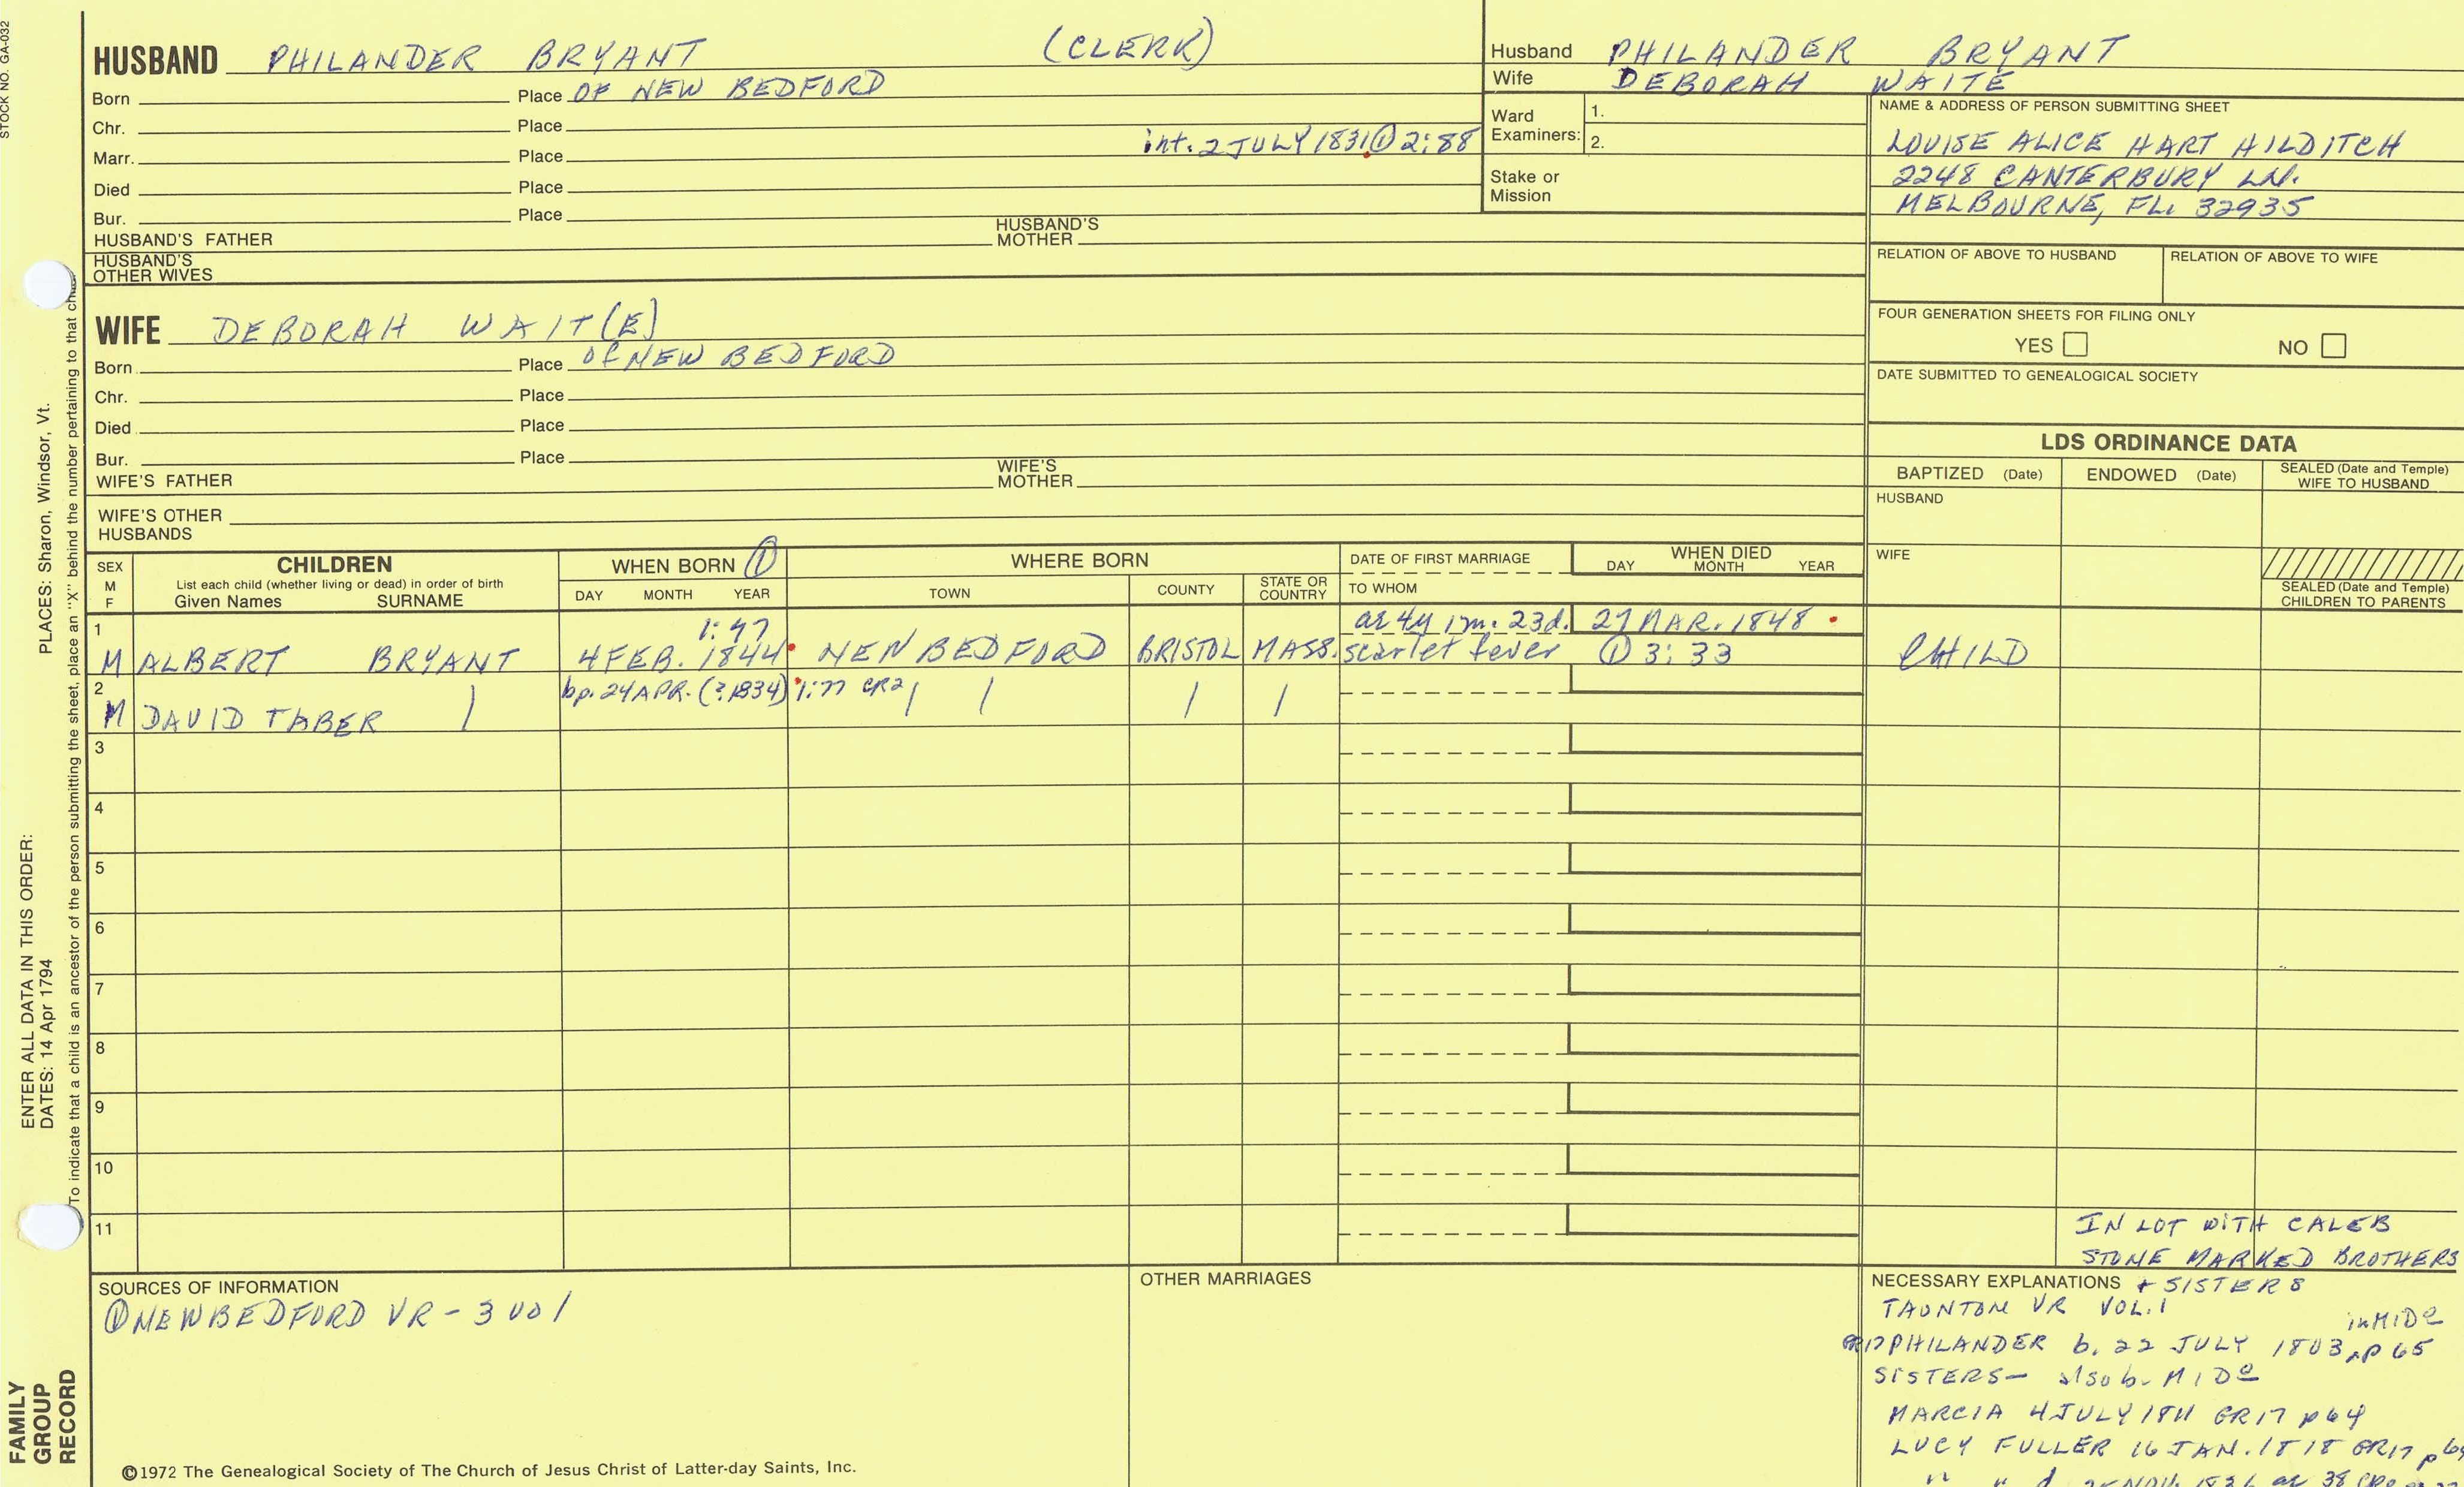 STOCK NO. GA-032
HUSBAND PHILANDER BRYANT (CLERK)
Born Place OF NEW BEDFORD
Chr. Place
Marr. Place int. 2 JULY 1831 ① 2:88
Died Place
Bur. Place
HUSBAND'S FATHER HUSBAND'S MOTHER
HUSBAND'S OTHER WIVES
Husband PHILANDER BRYANT
Wife DEBORAH WAITE
Ward Examiners: 1.
2.
Stake or Mission
NAME & ADDRESS OF PERSON SUBMITTING SHEET
LOUISE ALICE HART HILDITCH
2248 CANTERBURY LN.
MELBOURNE, FL. 32935
RELATION OF ABOVE TO HUSBAND RELATION OF ABOVE TO WIFE
FOUR GENERATION SHEETS FOR FILING ONLY
YES NO
DATE SUBMITTED TO GENEALOGICAL SOCIETY
WIFE DEBORAH WAIT(E)
Born Place Of NEW BEDFORD
Chr. Place
Died Place
Bur. Place
WIFE'S FATHER WIFE'S MOTHER
WIFE'S OTHER HUSBANDS
LDS ORDINANCE DATA
BAPTIZED (Date) ENDOWED (Date) SEALED (Date and Temple) WIFE TO HUSBAND
HUSBAND
WIFE
SEALED (Date and Temple) CHILDREN TO PARENTS
SEX M F
CHILDREN
List each child (whether living or dead) in order of birth
Given Names SURNAME
WHEN BORN ①
DAY MONTH YEAR
WHERE BORN
TOWN COUNTY STATE OR COUNTRY
DATE OF FIRST MARRIAGE
TO WHOM
WHEN DIED
DAY MONTH YEAR
1 1:47 ae 4y 1m. 23d. 27 MAR. 1848
M ALBERT BRYANT 4 FEB. 1844 NEW BEDFORD BRISTOL MASS. scarlet fever ① 3:33 CHILD
2 bp. 24 APR. (?1834) 1:77 CR2
M DAVID TABER
3
4
5
6
7
8
9
10
11
IN LOT WITH CALEB
STONE MARKED BROTHERS
SOURCES OF INFORMATION
① NEW BEDFORD VR - 3 vol
OTHER MARRIAGES
NECESSARY EXPLANATIONS + SISTERS
TAUNTON VR VOL. 1
in MIDᵉ
GR17 PHILANDER b. 22 JULY 1803, p 65
SISTERS - also b. MIDᵉ
MARCIA 4 JULY 1811 GR17 p 64
LUCY FULLER 16 JAN. 1818 GR17
©1972 The Genealogical Society of The Church of Jesus Christ of Latter-day Saints, Inc.
PLACES: Sharon, Windsor, Vt.
ENTER ALL DATA IN THIS ORDER:
DATES: 14 Apr 1794
To indicate that a child is an ancestor of the person submitting the sheet, place an "X" behind the number pertaining to that
FAMILY
GROUP
RECORD